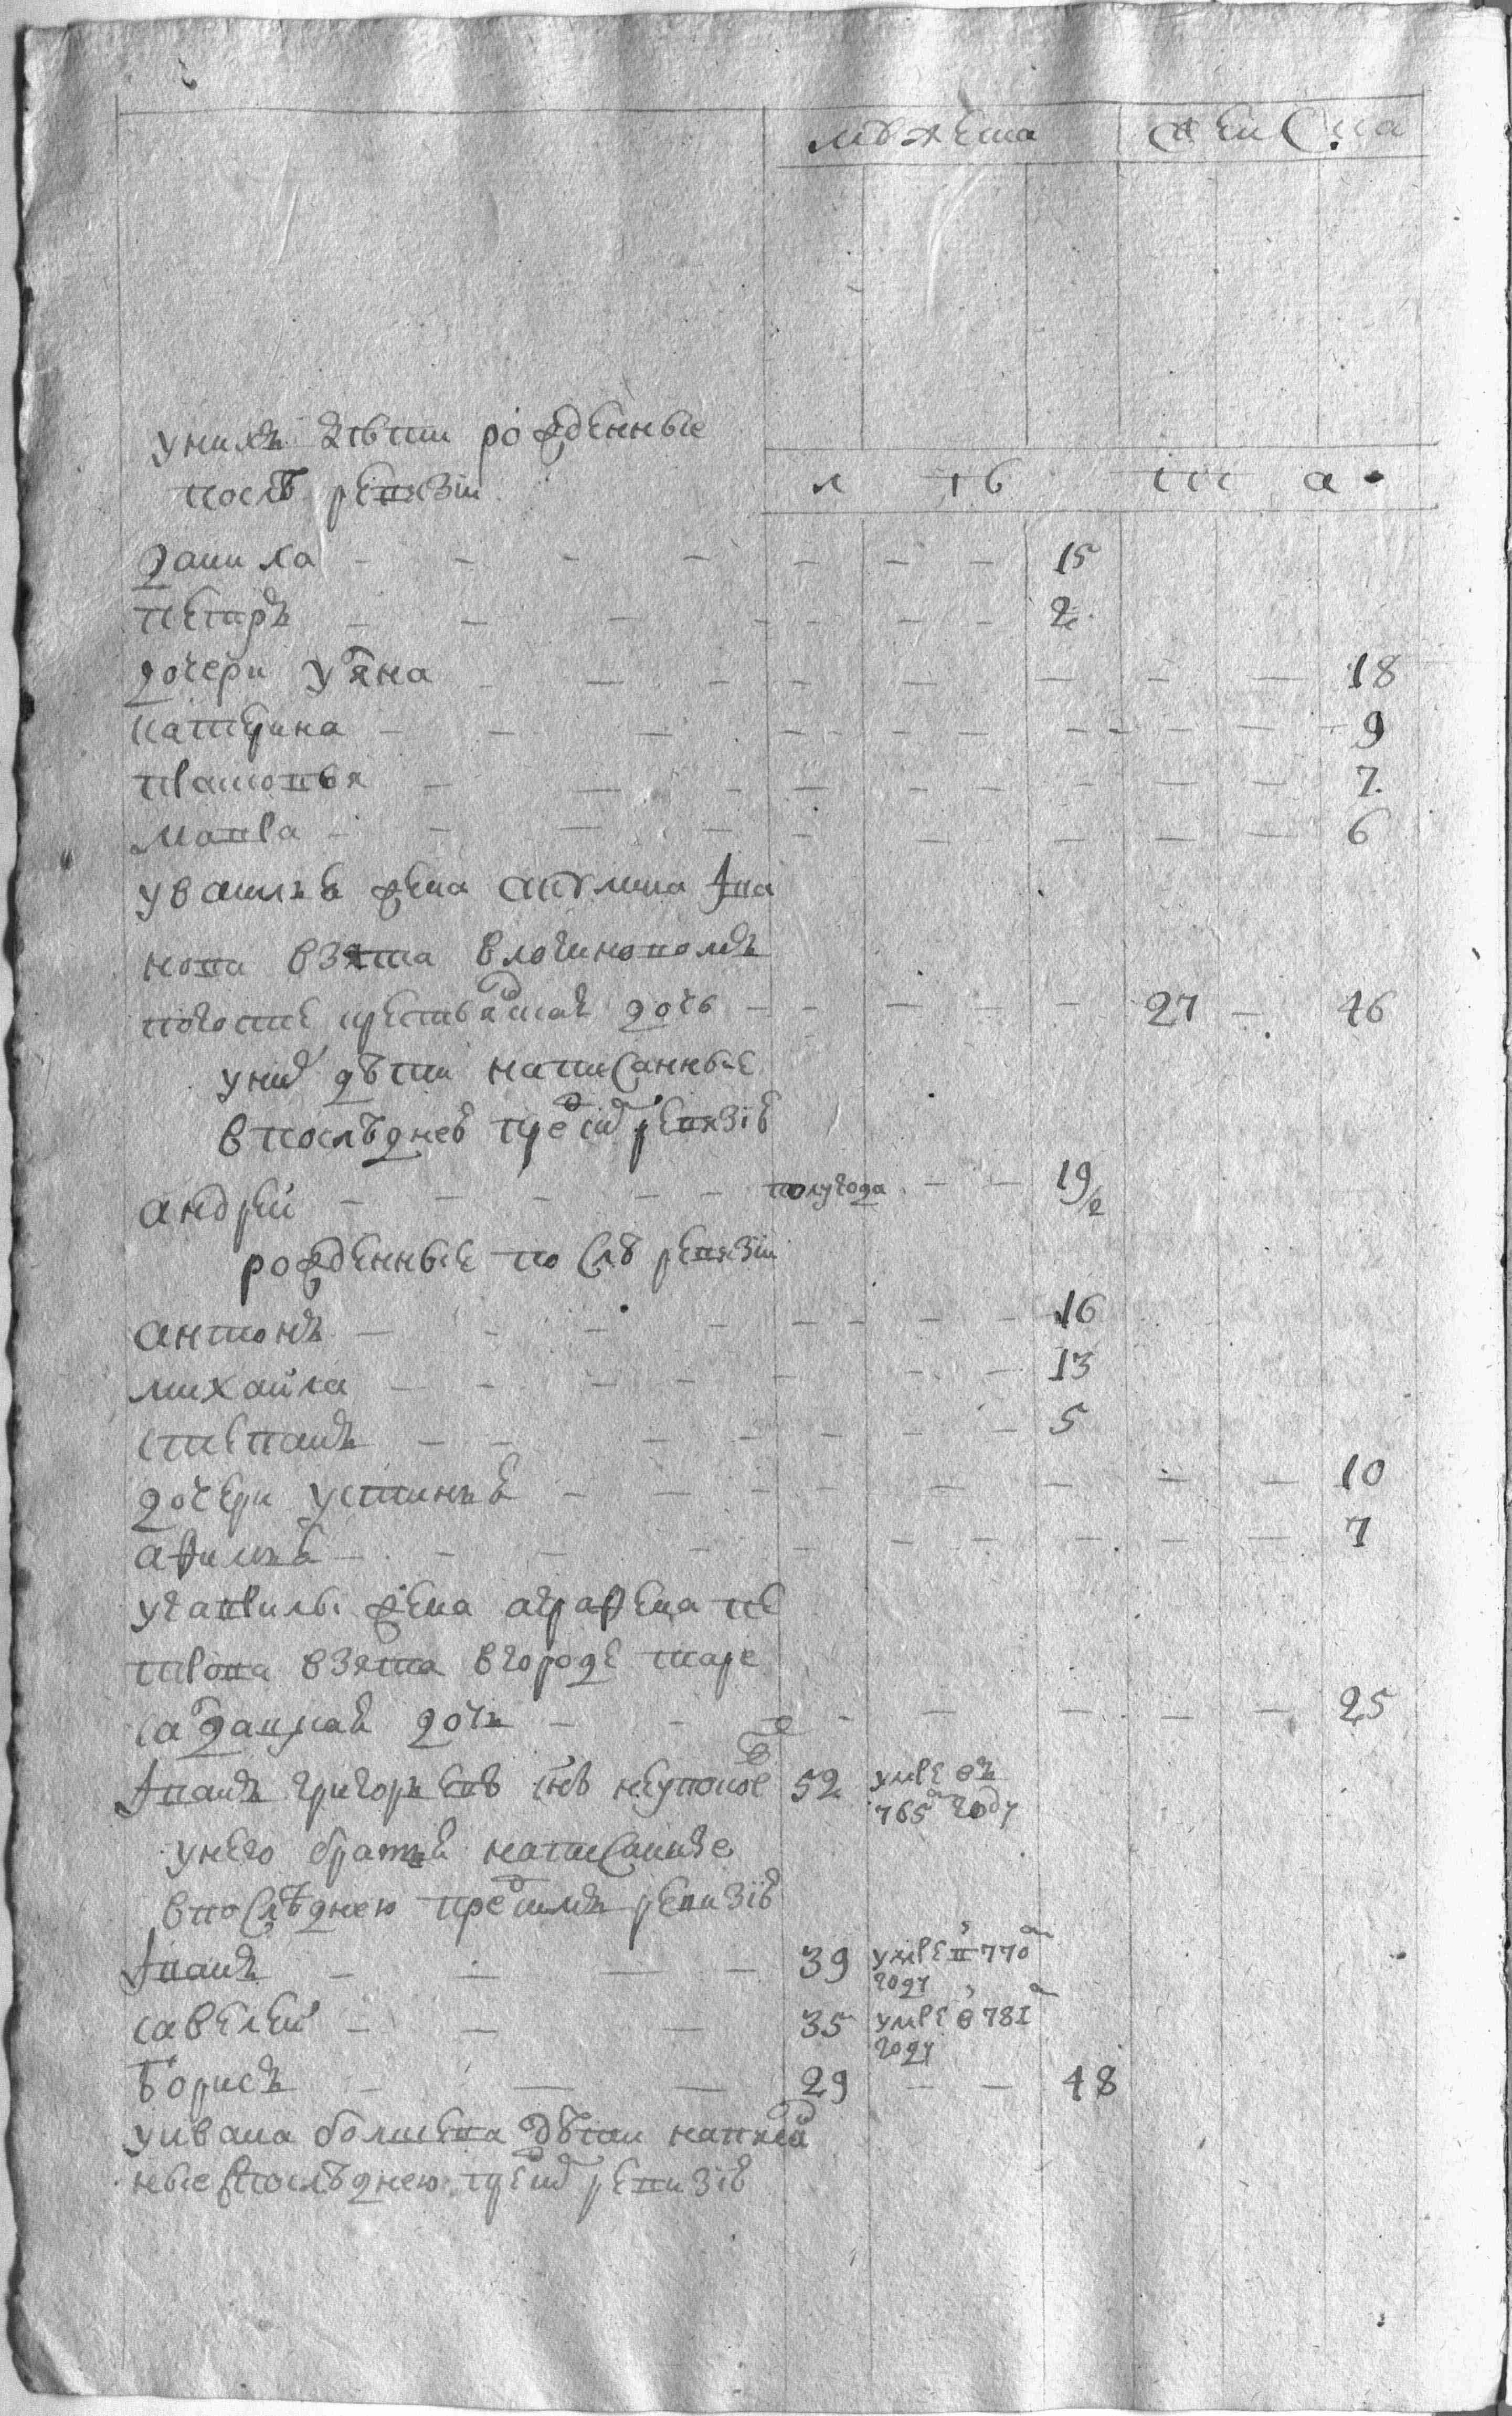 мужеска женска
у нихъ дѣти рожденные
послѣ ревизiи
л тѣ т а
данила 15
петръ 2
дочери 18
катерина 9
платонья 7
мавра 6
у василья жена акулина Ива
нова взята в логинововомъ
погосте крестьянская дочь 27 46
у них дѣти написанные
в последней пред сим ревизiи
андрей полугода 19/2
рожденные по слѣ ревизiи
антонъ 16
михайла 13
степанъ 5
дочери устинья 10
афимья 7
у гаврилы жена аграфена пе
трова взята в городе таре
дочь 25
Иванъ григорьевъ снъ 52 умре въ
765 году
у него братья написанные
в последнею пред симъ ревизiи
Иванъ 39 умре в 770
году
савелей 35 умре в 781
году
Борисъ 29 48
у ивана болшева дѣти написан
ные в последнею пред сим ревизiи